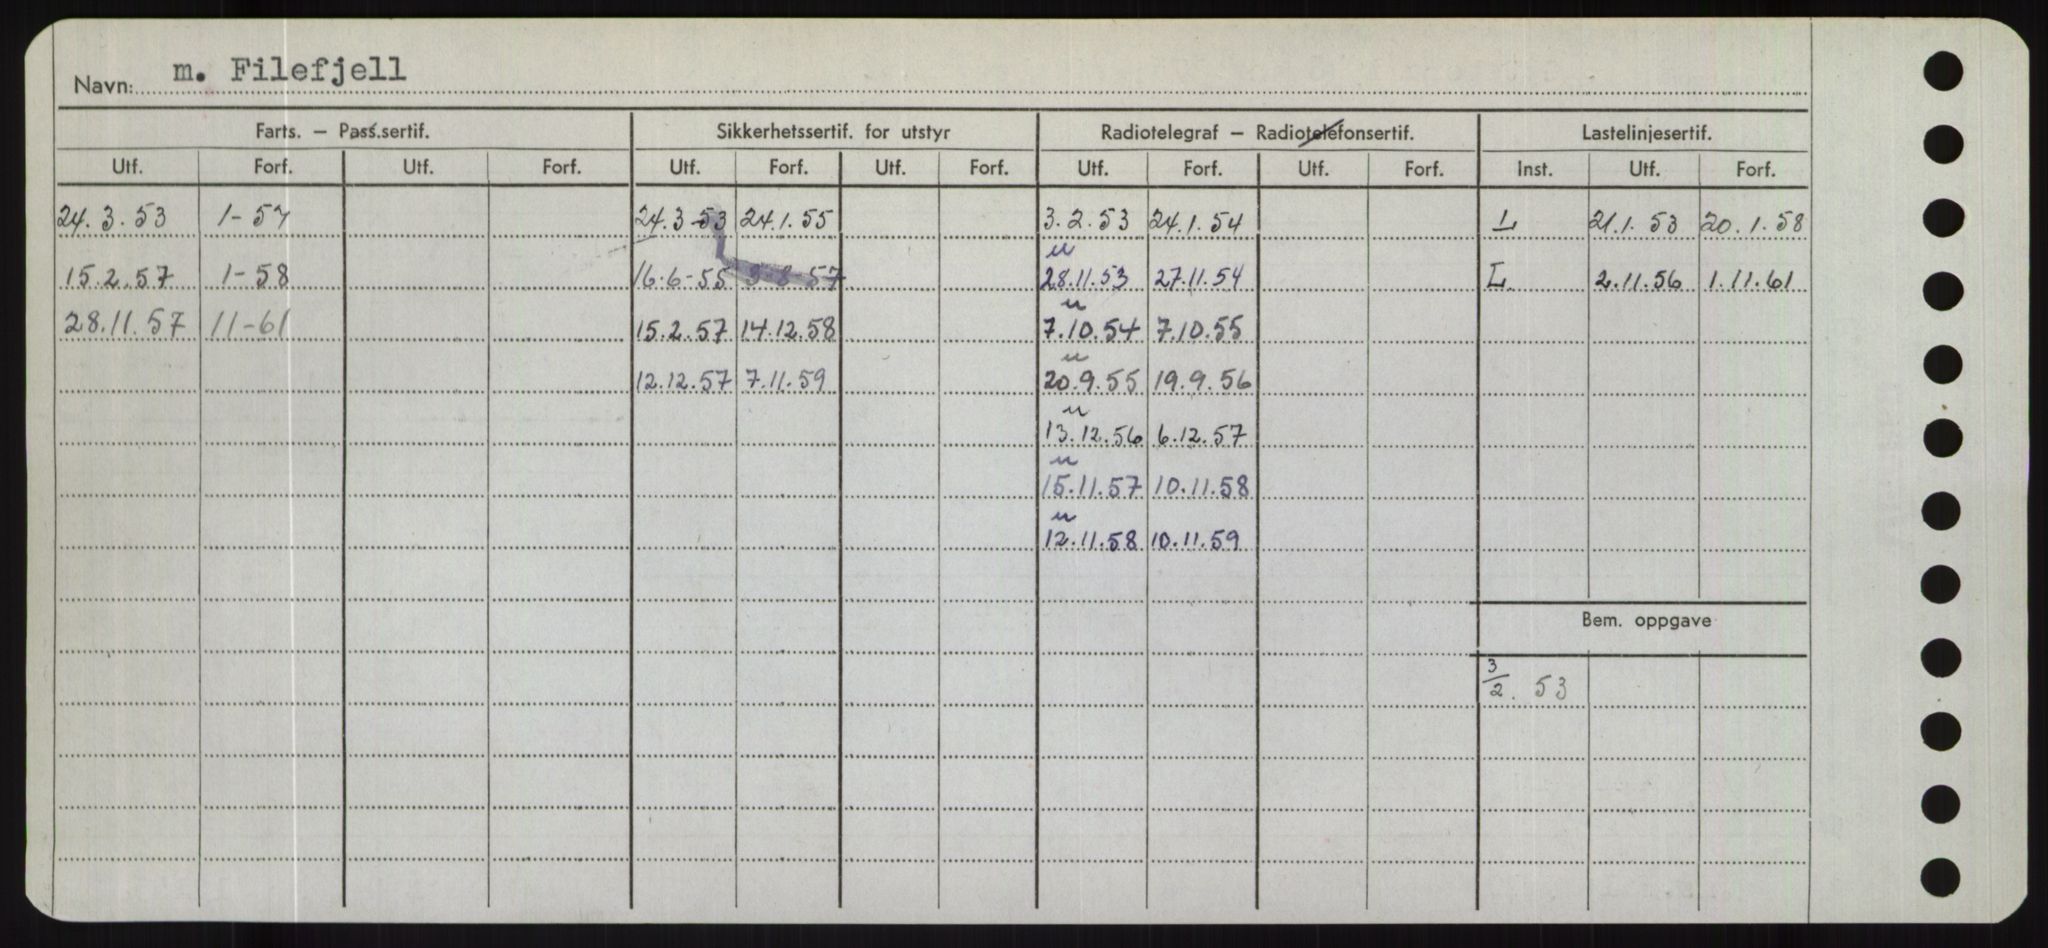 Navn: m. Filefjell
Farts. – Pass.sertif. Sikkerhetssertif. for utstyr Radiotelegraf – Radiotelefonsertif. Lastelinjesertif.
Utf. Forf. Utf. Forf. Utf. Forf. Utf. Forf. Utf. Forf. Utf. Forf. Inst. Utf. Forf.
24.3.53 1-57 24.3-53 24.1.55 3.2.53 24.1.54 L 21.1.53 20.1.58
u
15.2.57 1-58 16.6-55 9-8-57 28.11.53 27.11.54 L 2.11.56 1.11.61
u
28.11.57 11-61 15.2.57 14.12.58 7.10.54 7.10.55
u
12.12.57 7.11.59 20.9.55 19.9.56
u
13.12.56 6.12.57
u
15.11.57 10.11.58
u
12.11.58 10.11.59
Bem. oppgave
3/2. 53